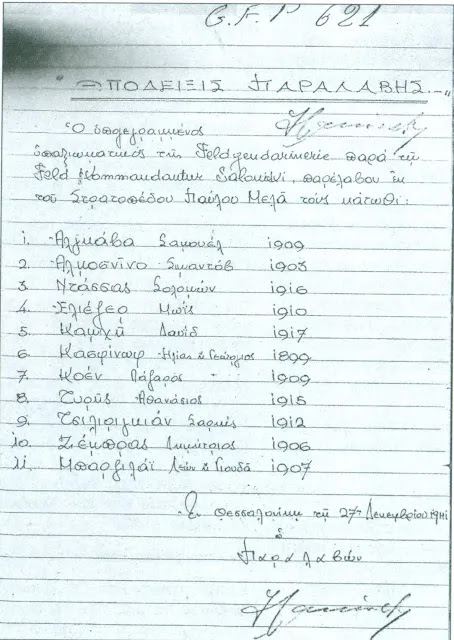 G.F.P 621
"ΑΠΟΔΕΙΞΙΣ ΠΑΡΑΛΑΒΗΣ.-"
Ὁ ὑπογεγραμμένος
ὑπαξιωματικός τῆς Feldgendarmerie παρά τῇ
Feld Kommandantur Saloniki, παρέλαβον ἐκ
τοῦ Στρατοπέδου Παύλου Μελᾶ τούς κάτωθι:
1. Ἀλμπάβα Σαμουέλ 1909
2. Ἀλμοσνῖνο Σιμαντώβ 1903
3. Ντάσσας Σολομών 1916
4. Ἐλιέζερ Μωΐς 1910
5. Καμχῆ Δαυίδ 1917
6. Ἠλίας ἤ Γεώργιος 1899
7. Κοέν Λάζαρος 1909
8. Τυρῆς Ἀθανάσιος 1915
9. Τσιλιγκιάν Σαρκίς 1912
10. Ζιέμπρας Δημήτριος 1906
11. Μπαρζιλάϊ Λεών ἤ Γιουδά 1907
Ἐν Θεσσαλονίκῃ τῇ 27ῃ Δεκεμβρίου 1941
ὁ
Παραλαβών